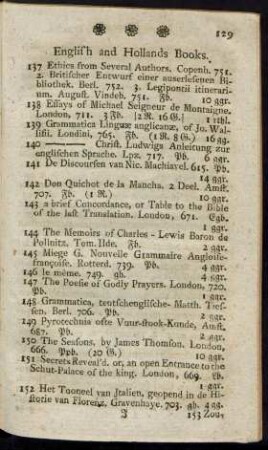 129
English and Hollands Books.
137 Ethics from Several Authors. Copenh. 751.
2. Britischer Entwurf einer auserlesenen Bi-
bliothek. Berl. 752. 3. Legipontii itinerari-
um. August. Vindeb. 751. Fb. 10 ggr.
138 Essays of Michael Seigneur de Montaigne.
London, 711. 3 Fb. [2 R. 16 G.] 1 rthl.
139 Grammatica Linguæ anglicanæ, of Jo. Wal-
lisii. Londini, 765. Fb. (1 R. 8 G.) 16 gg.
140 ——— Christ. Ludwigs Anleitung zur
englischen Sprache. Lpz. 717. Pb. 6 ggr.
141 De Discoursen van Nic. Machiavel. 615. Pb.
14 ggr.
142 Don Quichot de la Mancha. 2 Deel. Amst.
707. Fb. (1 R.) 10 ggr.
143 a brief Concordance, or Table to the Bible
of the last Translation. London, 671. Egb.
1 ggr.
144 The Memoirs of Charles-Lewis Baron de
Pollnitz. Tom. IIde. Fb. 2 ggr.
145 Miege G. Nouvelle Grammaire Angloise-
françoise. Rotterd. 739. Pb. 4 ggr.
146 le même. 749. gb. 4 ggr.
147 The Poesie of Godly Prayers. London, 720.
Pb. 1 ggr.
148 Grammatica, teutschenglische- Matth. Tief-
sen. Berl. 706. Pb. 2 ggr.
149 Pyrotechnia ofte Vuur-stook-Kunde, Amst.
687. Pb. 2 ggr.
150 The Seasons, by James Thomson. London,
666. Ppb. (20 G.) 10 ggr.
151 Secrets Reveal'd. or, an open Entrance to the
Schut-Palace of the king. London, 669. Lb.
1 ggr.
152 Het Tooneel van Jtalien, geopend in de Hi-
storie van Florenz, Gravenhaye. 703. gb. 4 gg.
J 153 Zou-